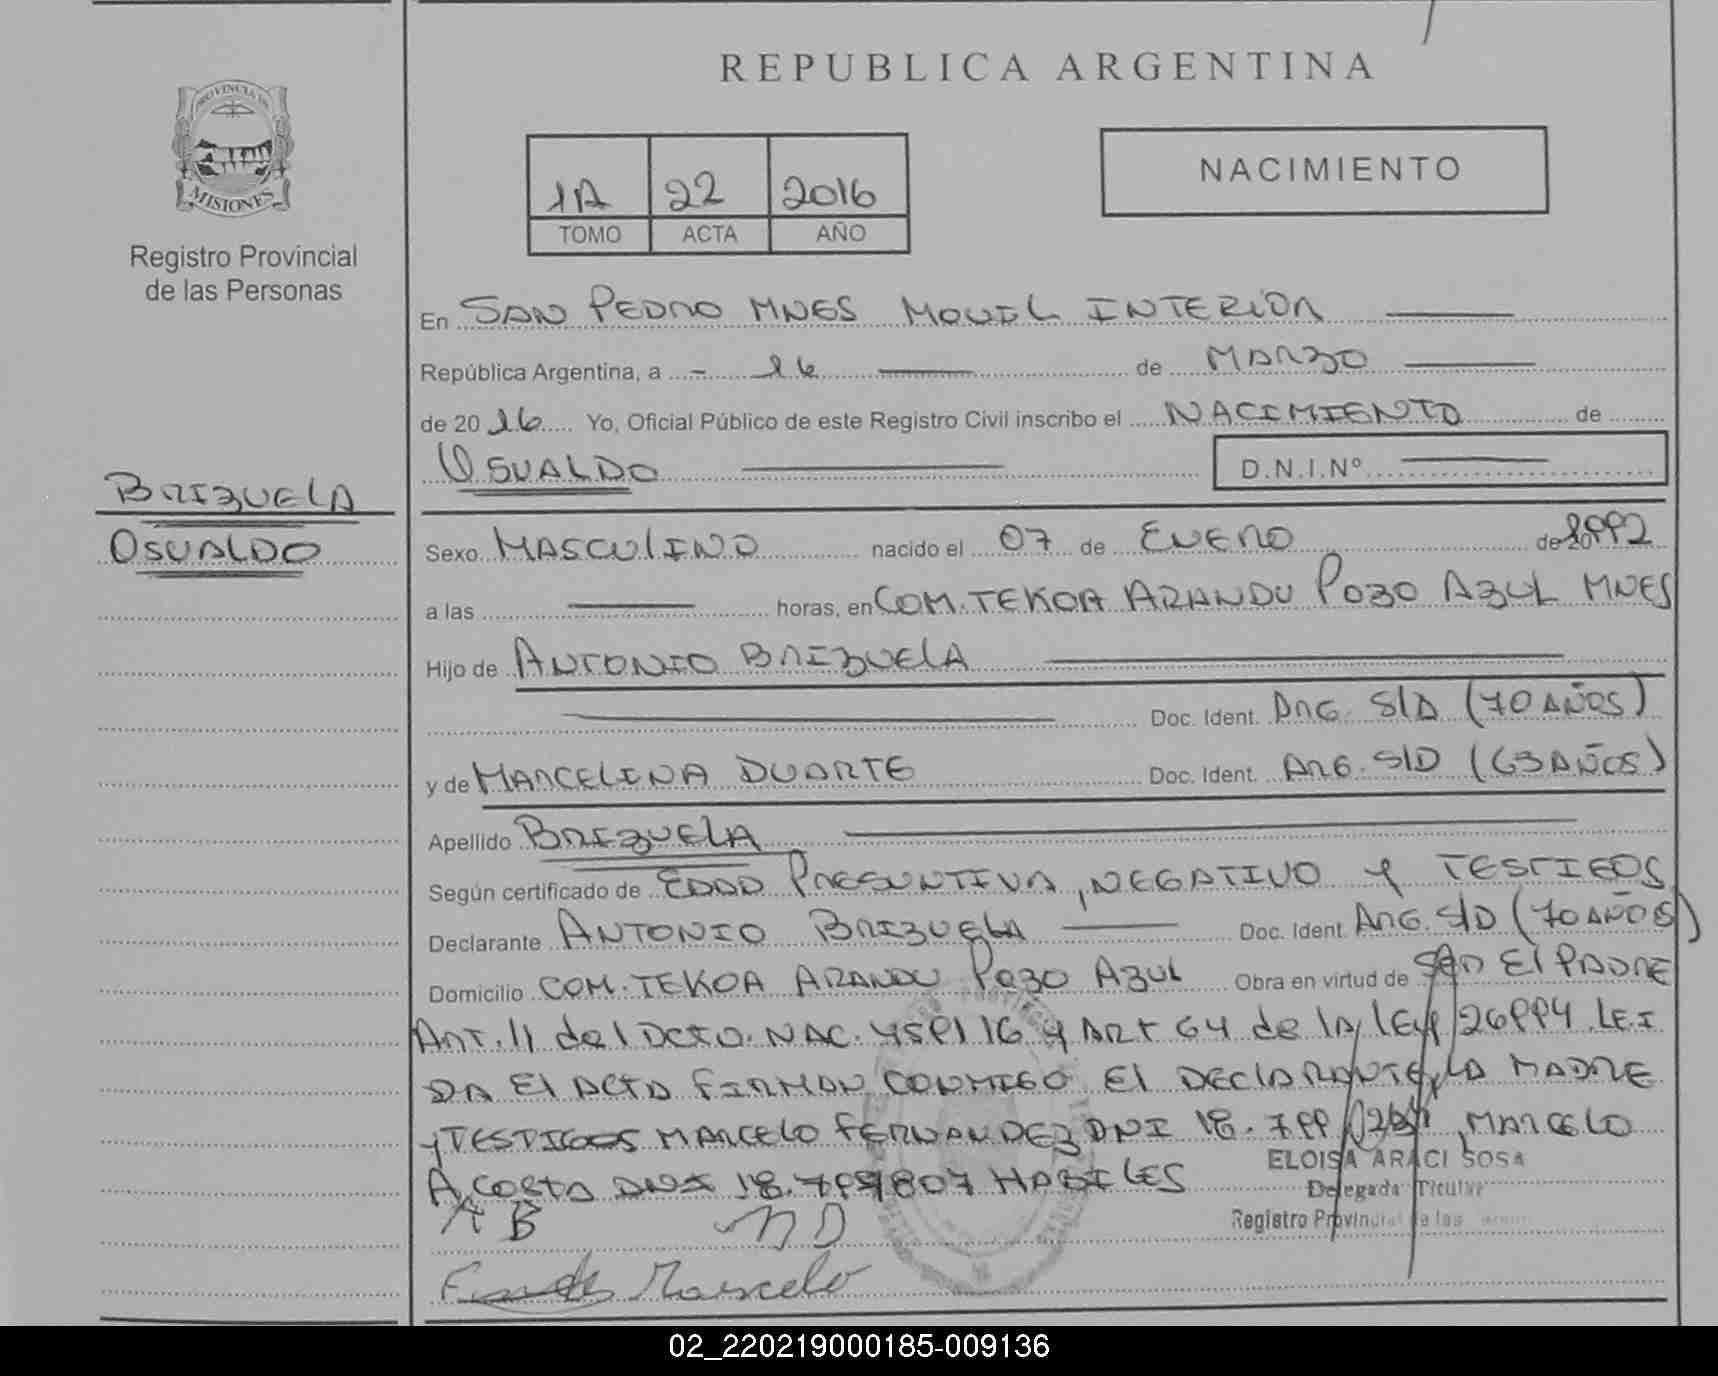 REPUBLICA ARGENTINA
PROVINCIA DE
MISIONES
Registro Provincial
de las Personas
1A 22 2016
TOMO ACTA AÑO
NACIMIENTO
En SAN PEDRO MNES MOVIL INTERIOR
República Argentina, a - 16 de MARZO
de 20 16 Yo, Oficial Público de este Registro Civil inscribo el NACIMIENTO de
OSUALDO D.N.I.Nº
BRIZUELA
OSUALDO
Sexo MASCULINO nacido el 07 de ENERO de 1992
a las horas, en COM. TEKOA ARANDU POZO AZUL MNES
Hijo de ANTONIO BRIZUELA
Doc. Ident. ARG. S/D (70 AÑOS)
y de MARCELINA DUARTE Doc. Ident. ARG. S/D (63 AÑOS)
Apellido BRIZUELA
Según certificado de EDAD PRESUNTIVA, NEGATIVO Y TESTIGOS
Declarante ANTONIO BRIZUELA Doc. Ident. ARG. S/D (70 AÑOS)
Domicilio COM. TEKOA ARANDU POZO AZUL Obra en virtud de SER El PADRE
ART. 11 del DCTO. NAC. 459/16 y ART 64 de la ley 26994. LEI
DA El ACTA FIRMAN CONMIGO El DECLARANTE, LA MADRE
y TESTIGOS MARCELO FERNANDEZ DNI 18.799 , MARCELO
ACOSTA DNI 18.799807 HABILES
ELOISA ARACI SOSA
Delegada Titular
Registro Provincial de las
A B M D
Marcelo
02_220219000185-009136